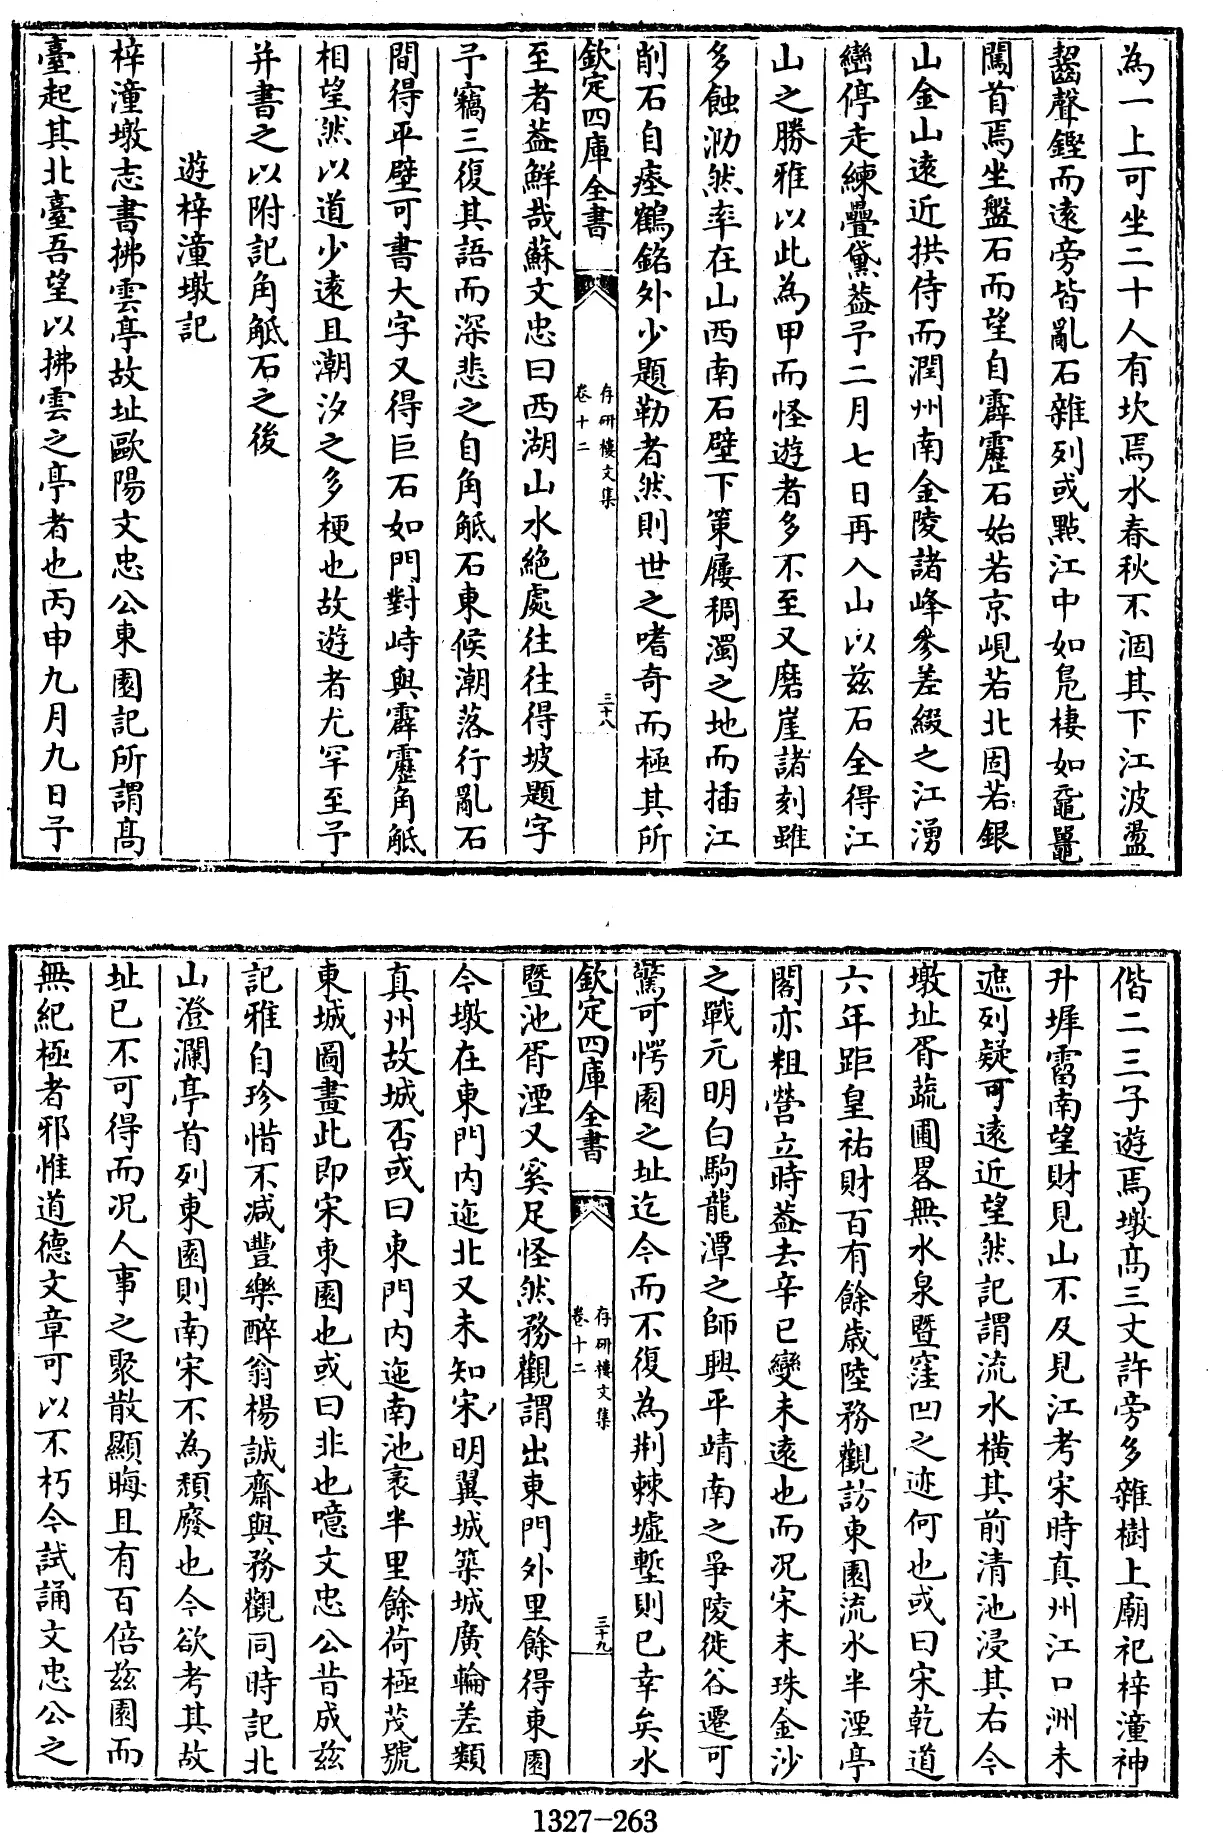 為一上可坐二十人有坎焉水春秋不涸其下江波盪
齧聲鏗而遠旁皆亂石雜列或點江中如鳧棲如黿鼉
闖首焉坐盤石而望自霹靂石始若京峴若北固若銀
山金山遠近拱侍而潤州南金陵諸峰參差綴之江湧
巒停走練疊黛葢予二月七日再入山以兹石全得江
山之勝雅以此為甲而怪遊者多不至又磨崖諸刻雖
多蝕泐然率在山西南石壁下策屨稠濁之地而插江
削石自瘞鶴銘外少題勒者然則世之嗜奇而極其所
欽定四庫全書
存研樓文集
卷十二
三十八
至者葢鮮哉蘇文忠曰西湖山水絶處往往得坡題字
予竊三復其語而深悲之自角觝石東候潮落行亂石
間得平壁可書大字又得巨石如門對峙與霹靂角觝
相望然以道少遠且潮汐之多梗也故遊者尤罕至予
并書之以附記角觝石之後
遊梓潼墩記
梓潼墩志書拂雲亭故址歐陽文忠公東園記所謂高
臺起其北臺吾望以拂雲之亭者也丙申九月九日予
偕二三子遊焉墩高三丈許旁多雜樹上廟祀梓潼神
升墀霤南望財見山不及見江考宋時真州江口洲未
遮列疑可遠近望然記謂流水橫其前清池浸其右今
墩址胥蔬圃畧無水泉暨窪凹之迹何也或曰宋乾道
六年距皇祐財百有餘歲陸務觀訪東園流水半湮亭
閣亦粗營立時葢去辛巳變未遠也而况宋末珠金沙
之戰元明白駒龍潭之師興平靖南之爭陵徙谷遷可
驚可愕園之址迄今而不復為荆棘墟塹則已幸矣水
欽定四庫全書
存研樓文集
卷十二
三十九
暨池胥湮又奚足怪然務觀謂出東門外里餘得東園
今墩在東門内迤北又未知宋明翼城築城廣輪差類
真州故城否或曰東門内迤南池袤半里餘荷極茂號
東城圖畫此即宋東園也或曰非也噫文忠公昔成兹
記雅自珍惜不減豐樂醉翁楊誠齋與務觀同時記北
山澄瀾亭首列東園則南宋不為頽廢也今欲考其故
址已不可得而况人事之聚散顯晦且有百倍兹園而
無紀極者邪惟道德文章可以不朽今試誦文忠公之
1327-263